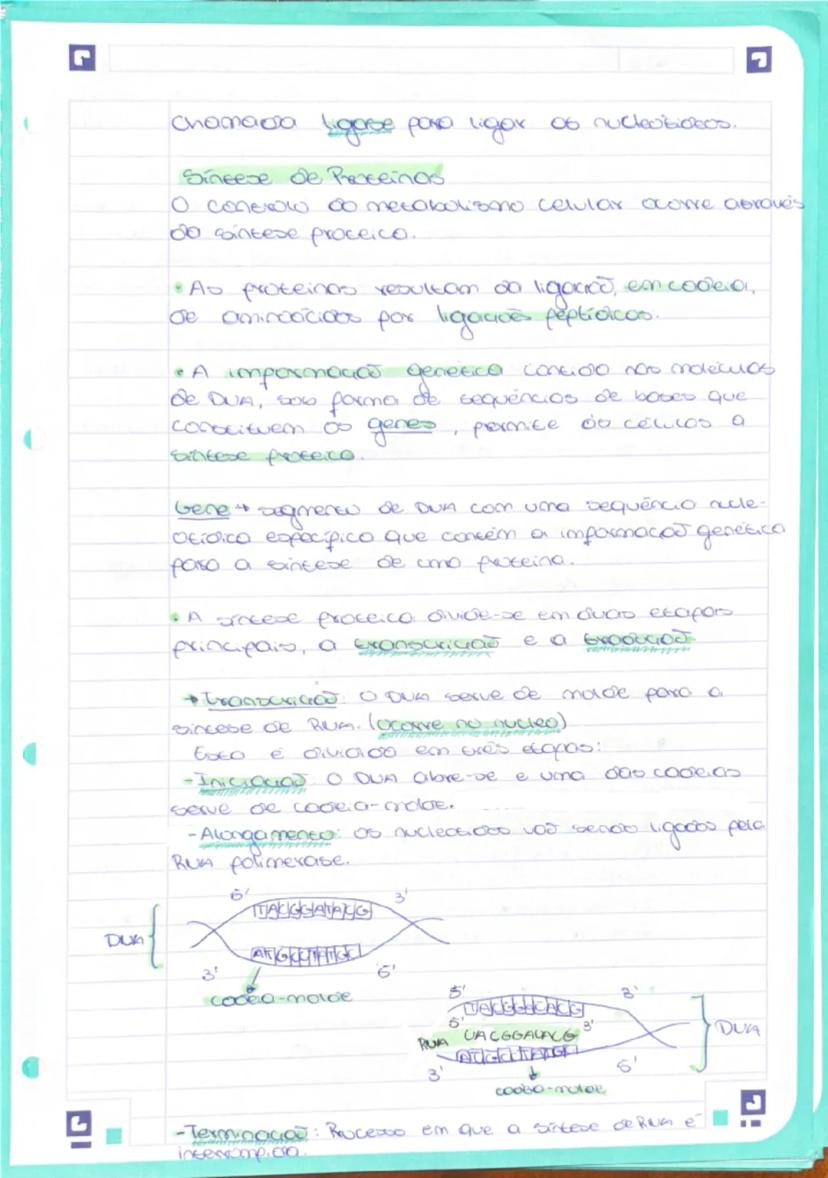 chamada ligase para ligar os nucleótidos.
Síntese de Proteínas
O controlo do metabolismo celular ocorre através
da síntese proteica.
• As proteínas resultam da ligação, em cadeia,
de aminoácidos por ligações peptídicas.
• A informação genética contida nas moléculas
de DNA, sob forma de sequências de bases que
constituem os genes, permite às células a
síntese proteica.
Gene → segmento de DNA com uma sequência nucle-
otídica específica que contém a informação genética
para a síntese de uma proteína.
• A síntese proteica divide-se em duas etapas
principais, a transcrição e a tradução
→ Transcrição: O DNA serve de molde para a
síntese de RNA. (ocorre no núcleo)
Esta é dividida em três etapas:
- Iniciação O DNA abre-se e uma das cadeias
serve de cadeia-molde.
- Alongamento: os nucleotidos vão sendo ligados pela
RNA polimerase.
5' 3'
TACGGATACG
DNA
3' 5'
cadeia-molde
5' 3'
5' 3'
RNA UACGGAUACG
DNA
3' 5'
cadeia-molde
- Terminação: Processo em que a síntese de RNA é
interrompida.